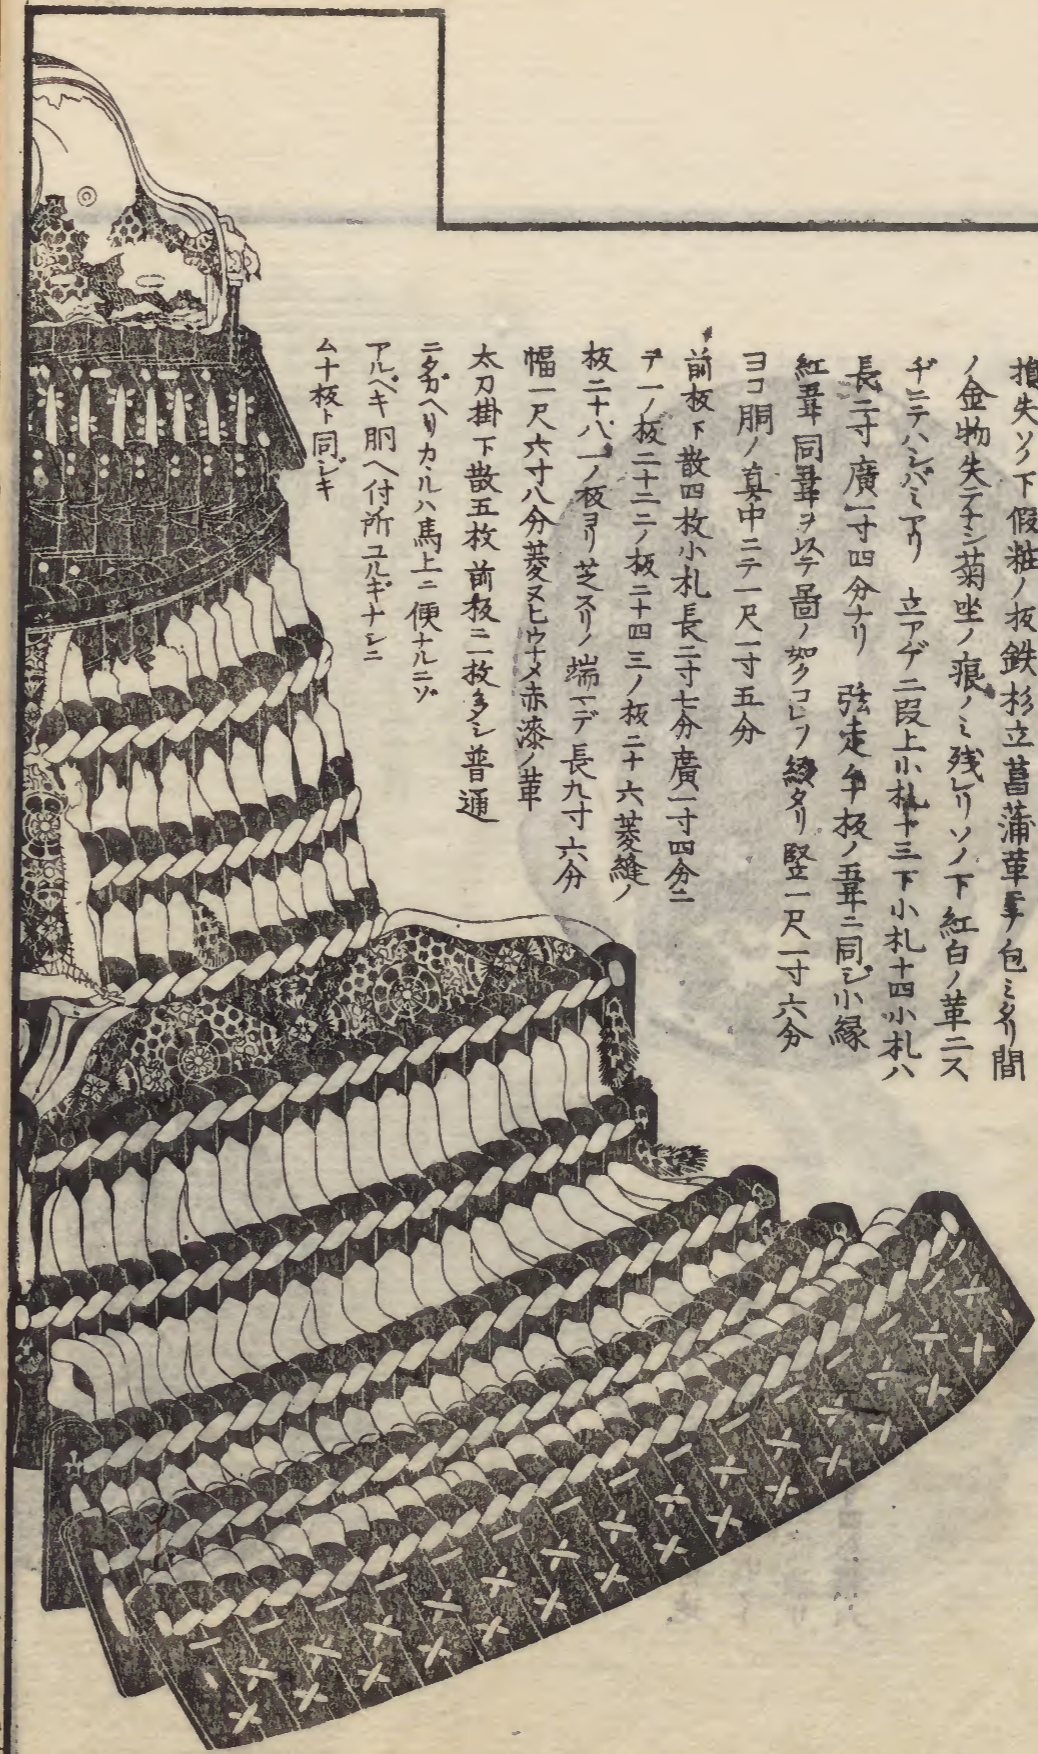 損失ソノ下假粧ノ板鉄杉立菖蒲韋ヲ包ミタリ間
ノ金物失テナシ菊坐ノ痕ノミ残レリソノ下紅白ノ革二ス
ヂニテハシバミアリ 立アゲ二段上小札十三下小札十四小札ハ
長二寸廣一寸四分ナリ 弦走 板ノ韋ニ同ジ小縁
紅韋同韋ヲ以テ啚ノ如クコレヲ綴タリ竪一尺一寸六分
ヨコ胴ノ真中ニテ一尺一寸五分
前板下散四枚小札長二寸七分廣一寸四分ニ
テ一ノ板二十二二ノ板二十四三ノ板二十六菱縫ノ
板二十八一ノ板ヨリ芝スリノ端マデ長九寸六分
幅一尺六寸八分菱ヌヒウナメ赤漆ノ革
太刀掛下散五枚前板二枚多シ普通
ニタガヘリカヽルハ馬上ニ便ナルニゾ
アルベキ胴ヘ付所ユルギナシニ
ム十板ト同ジキ